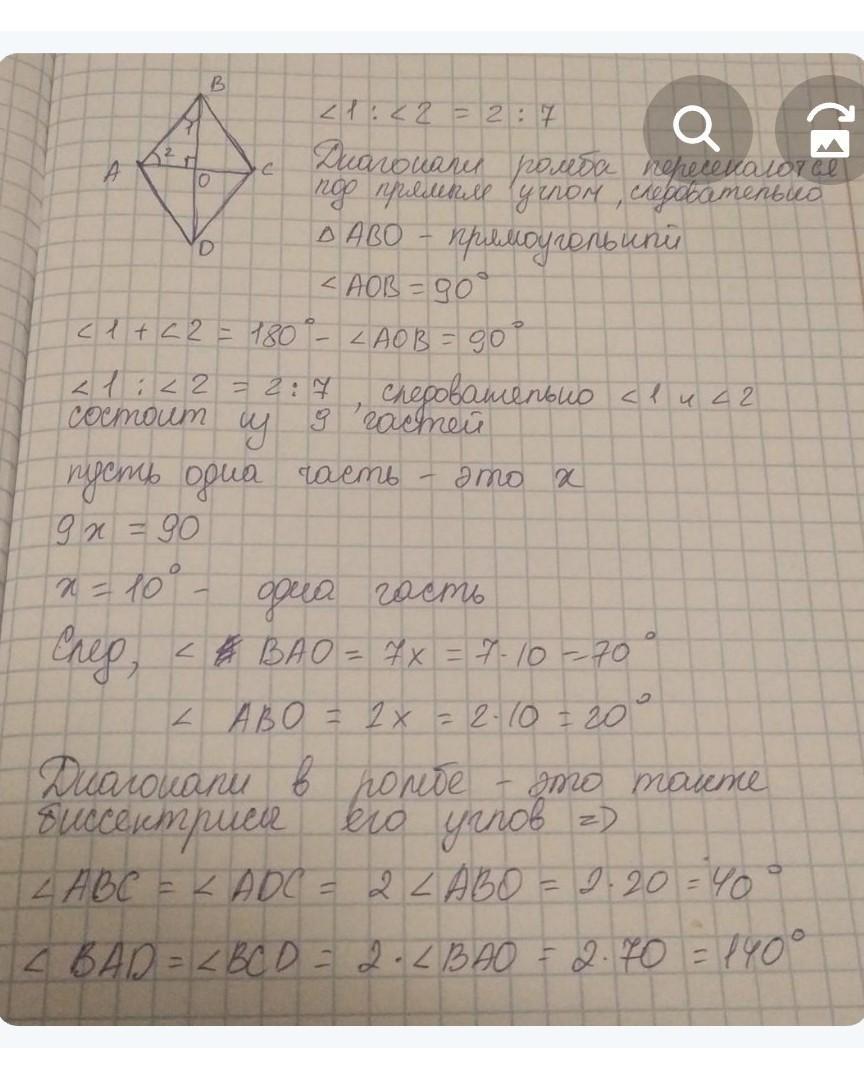 B
1
A
2
O
C
D
∠1 : ∠2 = 2 : 7
Диагонали ромба пересекаются
под прямым углом, следовательно
△ABO – прямоугольный
∠AOB = 90°
∠1 + ∠2 = 180° – ∠AOB = 90°
∠1 : ∠2 = 2 : 7, следовательно ∠1 и ∠2
состоит из 9 частей
пусть одна часть – это x
9x = 90
x = 10° – одна часть
След, ∠ BAO = 7x = 7·10 = 70°
∠ ABO = 2x = 2·10 = 20°
Диагонали в ромбе – это также
биссектрисы его углов =>
∠ABC = ∠ADC = 2 ∠ABO = 2·20 = 40°
∠ BAD = ∠BCD = 2·∠BAO = 2·70 = 140°